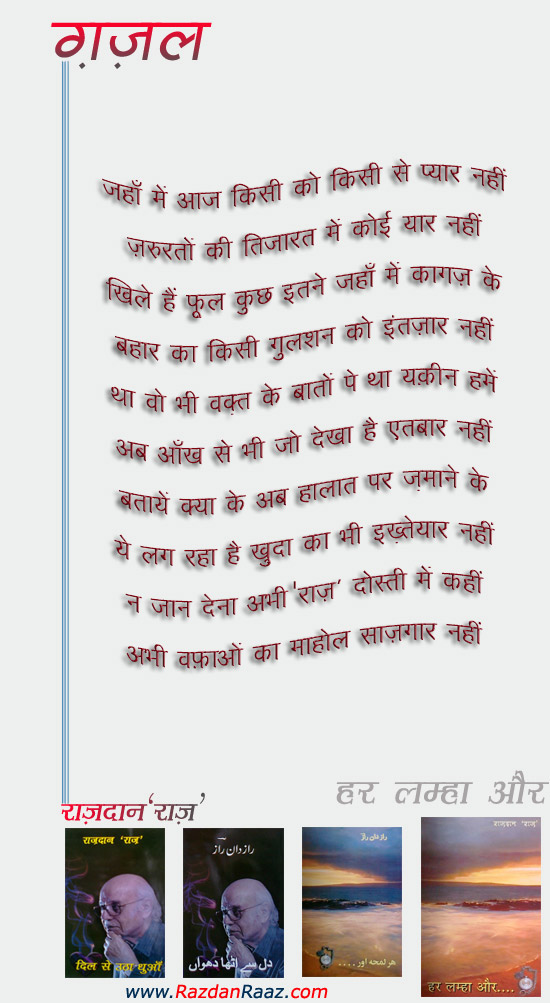 ग़ज़ल
जहाँ में आज किसी को किसी से प्यार नहीं
ज़रुरतों की तिजारत में कोई यार नहीं
खिले हैं फूल कुछ इतने जहाँ में कागज़ के
बहार का किसी गुलशन को इंतज़ार नहीं
था वो भी वक़्त के बातों पे था यक़ीन हमें
अब आँख से भी जो देखा है एतबार नहीं
बतायें क्या के अब हालात पर ज़माने के
ये लग रहा है खुदा का भी इख़्तेयार नहीं
न जान देना अभी 'राज़' दोस्ती में कहीं
अभी वफ़ाओं का माहोल साज़गार नहीं
हर लम्हा और
राज़दान 'राज़'
राज़दान 'राज़'
दिल से उठा धुआँ
رازدان راز
دل سے اٹھا دھواں
رازدان راز
ہر لمحہ اور ....
राज़दान 'राज़'
हर लम्हा और....
www.RazdanRaaz.com